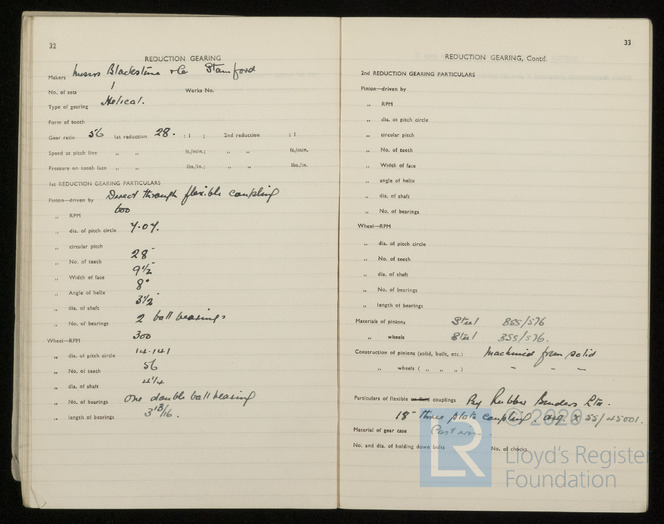 32
REDUCTION GEARING
Makers Messrs Blackstone & Co Stamford
No. of sets 1 Works No.
Type of gearing Helical.
Form of teeth
Gear ratio 56 1st reduction 28. : 1 ; 2nd reduction : 1
Speed at pitch line " " ft./min.; " " ft./min.
Pressure on tooth face " " lbs./in.; " " lbs./in.
1st REDUCTION GEARING PARTICULARS
Pinion—driven by Direct through flexible coupling
" RPM 600
" dia. of pitch circle 7.07.
" circular pitch
" No. of teeth 28
" Width of face 9½"
" Angle of helix 8°
" dia. of shaft 3½"
" No. of bearings 2 ball bearings
Wheel—RPM 300
" dia. of pitch circle 14.141
" No. of teeth 56
" dia. of shaft 4¼
" No. of bearings One double ball bearing
" length of bearings
33
REDUCTION GEARING, Contd.
2nd REDUCTION GEARING PARTICULARS
Pinion—driven by
" RPM
" dia. of pitch circle
" circular pitch
" No. of teeth
" Width of face
" angle of helix
" dia. of shaft
" No. of bearings
Wheel—RPM
" dia. of pitch circle
" No. of teeth
" dia. of shaft
" No. of bearings
" length of bearings
Materials of pinions Steel 855/576
" wheels Steel 355/576.
Construction of pinions (solid, built, etc.) Machined from solid
" wheels ( " " " ) " " "
Particulars of flexible couplings By Rubber Bonders Ltd.
18" three plate coupling X 55/45001.
Material of gear case Cast iron.
No. and dia. of holding down bolts No. of chocks
© 2020
LR
Lloyd's Register
Foundation